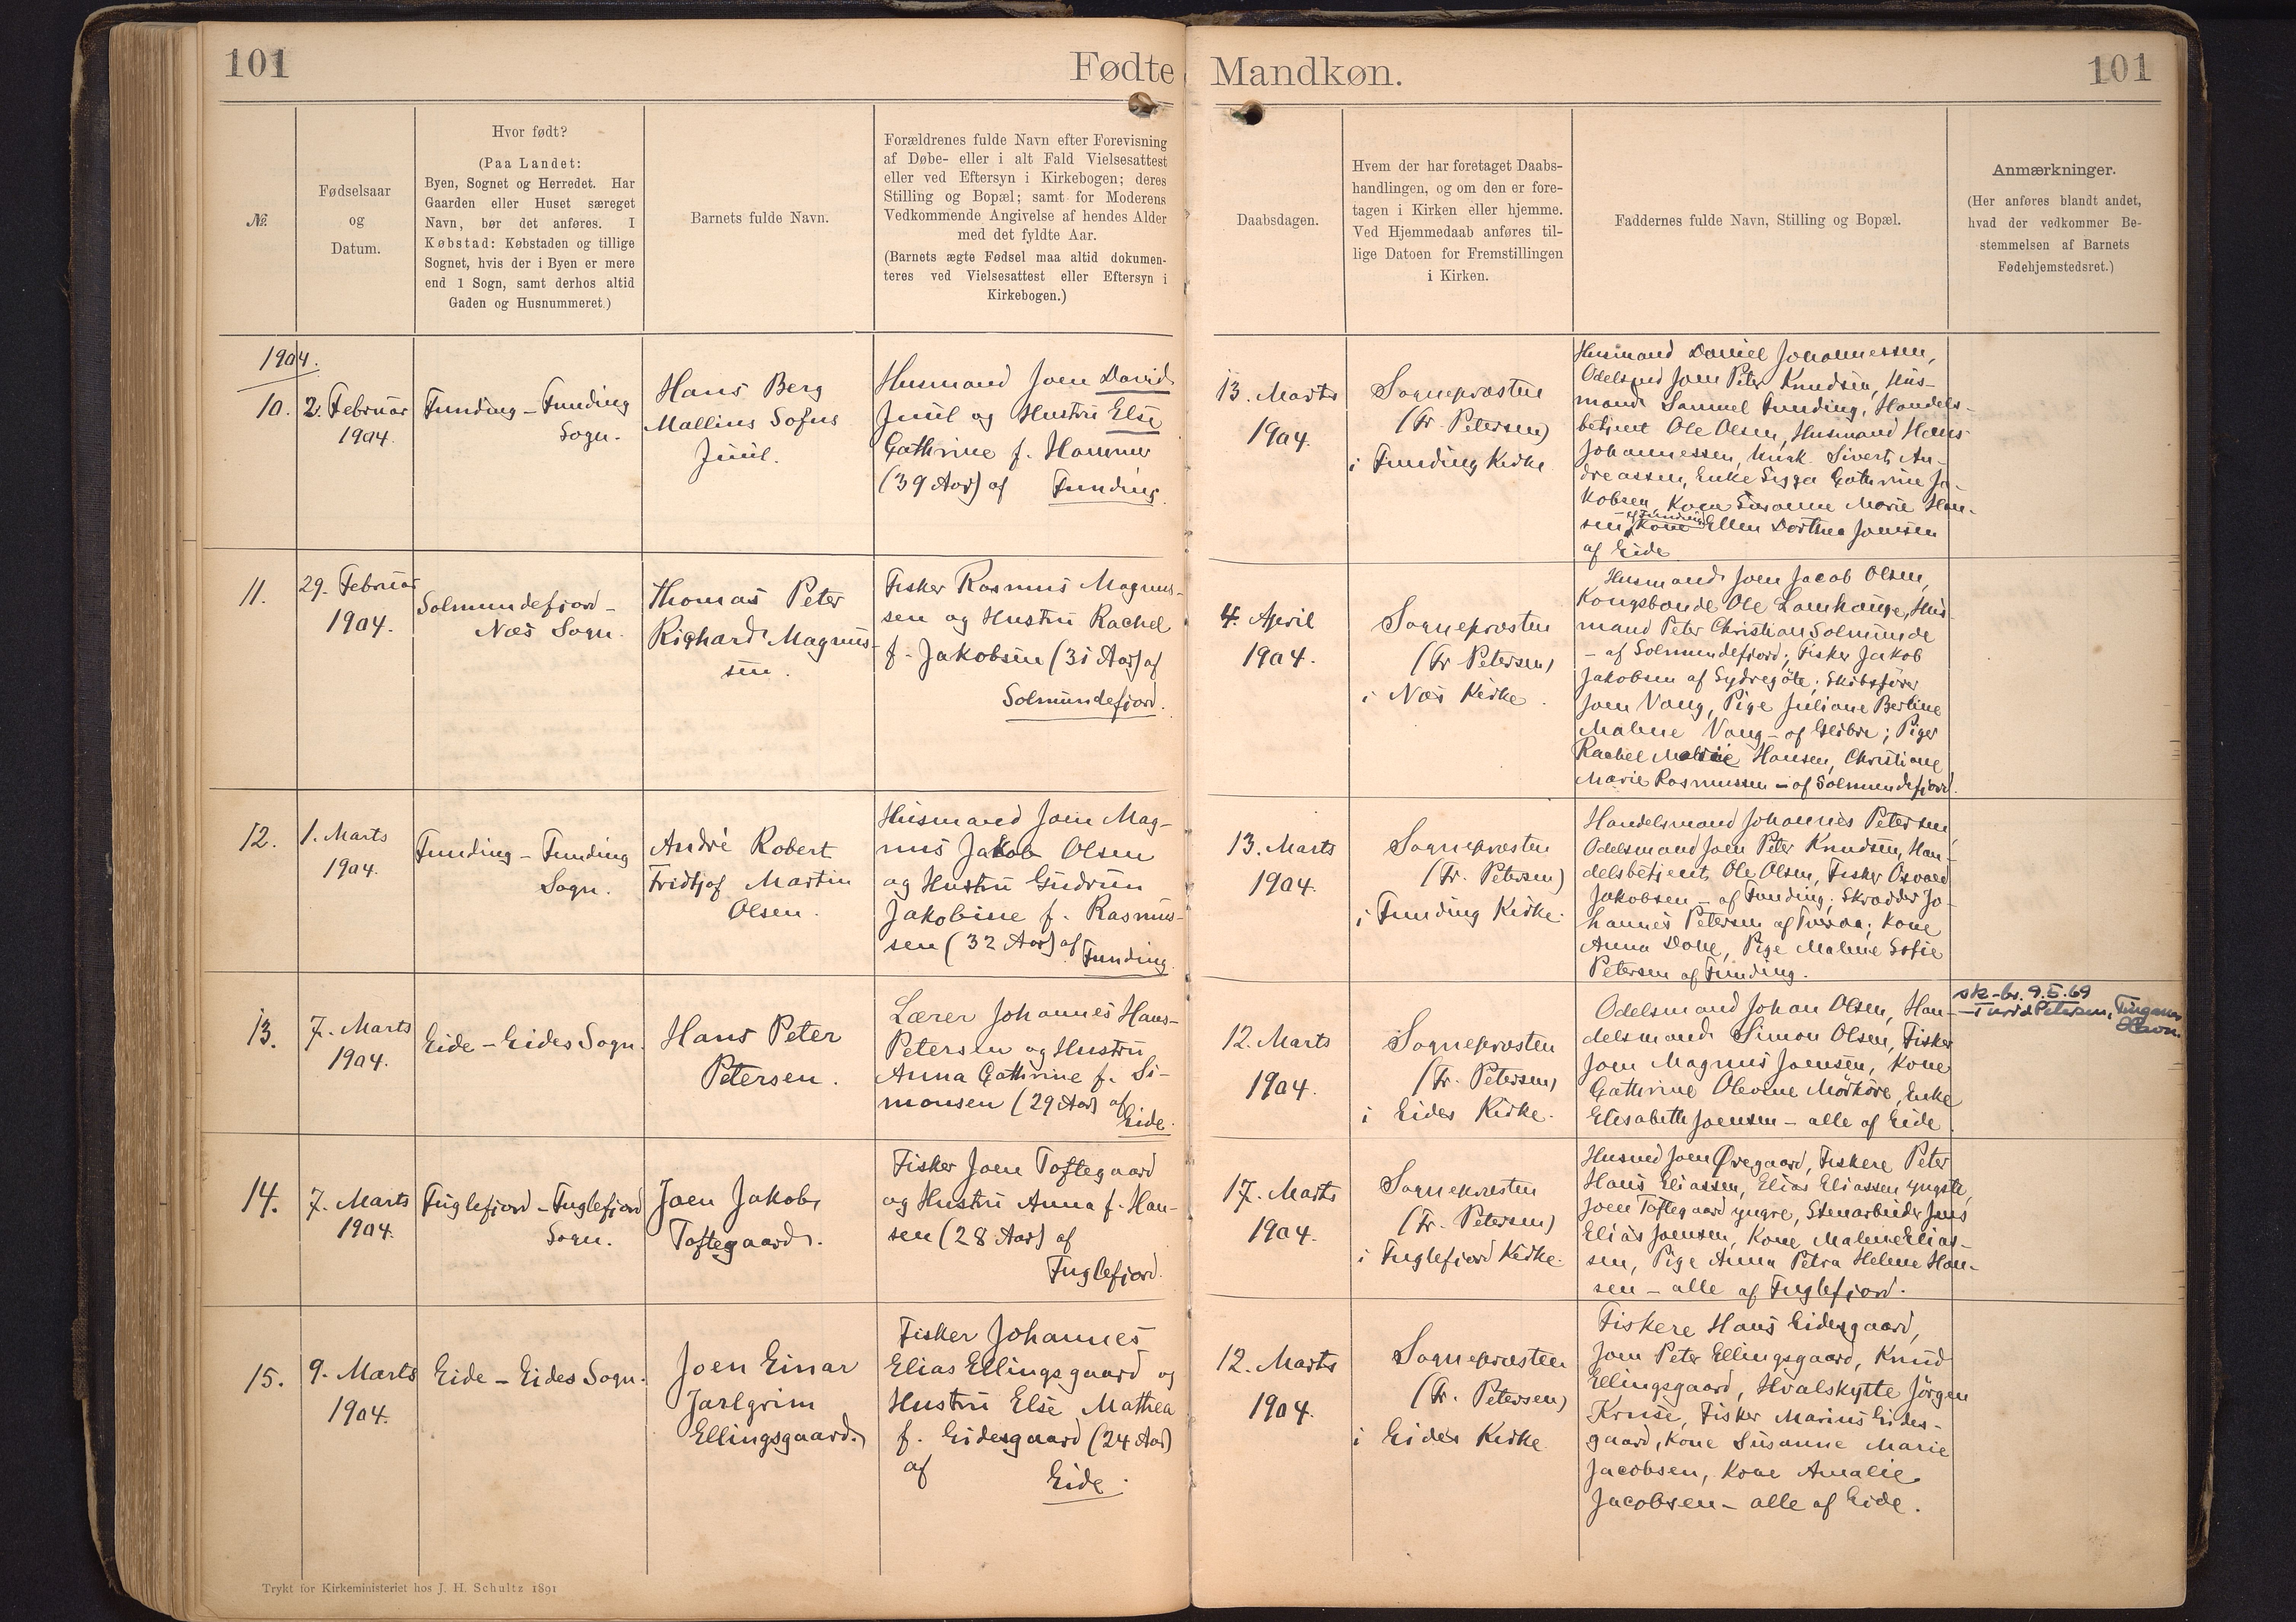 101
Fødte
Mandkøn.
101
№.
Fødselsaar
og
Datum.
Hvor født?
(Paa Landet:
Byen, Sognet og Herredet. Har
Gaarden eller Huset særeget
Navn, bør det anføres. I
Købstad: Købstaden og tillige
Sognet, hvis der i Byen er mere
end 1 Sogn, samt derhos altid
Gaden og Husnummeret.)
Barnets fulde Navn.
Forældrenes fulde Navn efter Forevisning
af Døbe- eller i alt Fald Vielsesattest
eller ved Eftersyn i Kirkebogen; deres
Stilling og Bopæl; samt for Moderens
Vedkommende Angivelse af hendes Alder
med det fyldte Aar.
(Barnets ægte Fødsel maa altid dokumen-
teres ved Vielsesattest eller Eftersyn i
Kirkebogen.)
Daabsdagen.
Hvem der har foretaget Daabs-
handlingen, og om den er fore-
tagen i Kirken eller hjemme.
Ved Hjemmedaab anføres til-
lige Datoen for Fremstillingen
i Kirken.
Faddernes fulde Navn, Stilling og Bopæl.
Anmærkninger.
(Her anføres blandt andet,
hvad der vedkommer Be-
stemmelsen af Barnets
Fødehjemstedsret.)
1904.
10.
2. Februar
1904.
Funding - Funding
Sogn.
Hans Berg
Mallius Sofus
Juul.
Husmand Joen David
Juul og Hustru Else
Cathrine f. Hammer
(39 Aar) af Funding.
13. Marts
1904.
Sognepræsten
(Fr. Petersen)
i Funding Kirke
Husmand Daniel Johannessen,
Odelsmd Joen Peter Knudsen, Hus-
mand Samuel Funding, Handels-
betjent Ole Olsen, Husmand Hans
Johannessen, Sivert An-
dreassen, Enke Sigga Cathrine Ja-
kobsen, Kone Susanne Marie Han-
sen af Funding, Kone Ellen Dorthea Joensen
af Eide
11.
29. Februar
1904.
Solmundefjord -
Næs Sogn.
Thomas Peter
Richard Magnus-
sen.
Fisker Rasmus Magnus-
sen og Hustru Rachel
f. Jakobsen (31 Aar) af
Solmundefjord.
4. April
1904.
Sognepræsten
(Fr Petersen)
i Næs Kirke.
Husmand Joen Jacob Olsen,
Kongsbonde Ole Lamhauge, Hus-
mand Peter Christian Solmunde
- af Solmundefjord; Fisker Jakob
Jakobsen af Sydregöte; Skibsfører
Joen Vang, Pige Juliane Bertine
Malene Vang - af Glibre; Piger
Rachel Hansen, Christiane
Marie Rasmussen - af Solmundefjord.
12.
1. Marts
1904.
Funding - Funding
Sogn.
André Robert
Fridtjof Martin
Olsen.
Husmand Joen Mag-
nus Jakob Olsen
og Hustru Gudrun
Jakobine f. Rasmus-
sen (32 Aar) af
Funding.
13. Marts
1904.
Sognepræsten
(Fr. Petersen)
i Funding Kirke.
Handelsmand Johannes Petersen,
Odelsmand Joen Peter Knudsen, Han-
delsbetjent Ole Olsen, Fisker Osvald
Jakobsen - af Funding; Skrædder Jo-
hannes Petersen af Tværaa; Kone
Anna Dahl, Pige Malene Sofie
Petersen af Funding.
13.
7. Marts
1904.
Eide - Eides Sogn.
Hans Peter
Petersen.
Lærer Johannes Hans-
Petersen og Hustru
Anna Cathrine f. Si-
monsen (29 Aar) af
Eide.
12. Marts
1904.
Sognepræsten
(Fr. Petersen)
i Eides Kirke.
Odelsmand Johan Olsen, Han-
delsmand Simon Olsen, Fisker
Joen Magnus Joensen, Kone
Cathrine Olevine Mørköre, Enke
Elisabeth Joensen - alle af Eide.
sk-br. 9.5.69
- Turid Petersen, Tinganes
Havn.
14.
7. Marts
1904.
Fuglefjord - Fuglefjord
Sogn.
Joen Jakob
Toftegaard.
Fisker Joen Toftegaard
og Hustru Anna f. Han-
sen (28 Aar) af
Fuglefjord.
17. Marts
1904.
Sognepræsten
(Fr. Petersen)
i Fuglefjord Kirke.
Husmd Joen Øregaard, Fiskere Peter
Hans Eliassen, Elias Eliassen yngste,
Joen Toftegaard yngre, Stenarbeider Jens
Elias Joensen, Kone Malene Elias-
sen, Pige Anna Petra Helene Han-
sen - alle af Fuglefjord.
15.
9. Marts
1904.
Eide - Eides Sogn.
Joen Einar
Jarlgrim
Ellingsgaard.
Fisker Johannes
Elias Ellingsgaard og
Hustru Else Mathea
f. Eidesgaard (24 Aar)
af
Eide.
12. Marts
1904.
Sognepræsten
(Fr. Petersen)
i Eides Kirke
Fiskere Hans Eidesgaard,
Joen Peter Ellingsgaard, Knud
Ellingsgaard, Hvalskytte Jörgen
Kruse, Fisker Marius Eides-
gaard, Kone Susanne Marie
Jacobsen, Kone Amalie
Jacobsen - alle af Eide.
Trykt for Kirkeministeriet hos J. H. Schultz 1891